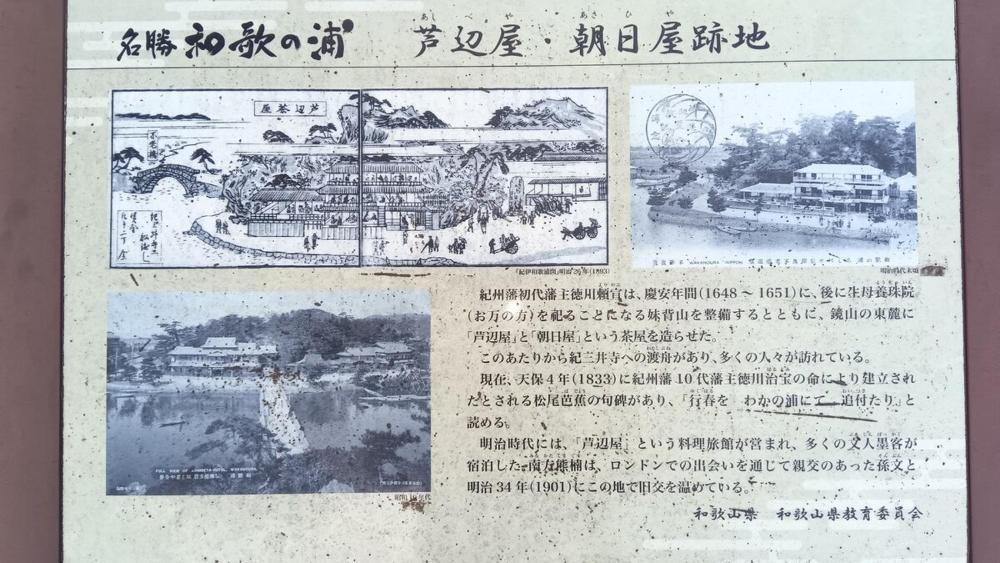 名勝 和歌の浦 芦辺屋・朝日屋跡地
あしべや あさひや
芦辺茶屋
不老橋
『紀伊和歌浦図』明治26年(1893)
明治時代末頃
紀州藩初代藩主徳川頼宣は、慶安年間(1648～1651)に、後に生母養珠院
(お万の方)を祀ることになる妹背山を整備するとともに、鏡山の東麓に
「芦辺屋」と「朝日屋」という茶屋を造らせた。
このあたりから紀三井寺への渡舟があり、多くの人々が訪れている。
現在、天保4年(1833)に紀州藩10代藩主徳川治宝の命により建立され
たとされる松尾芭蕉の句碑があり、「行春を わかの浦にて 追付たり」と
読める。
明治時代には、「芦辺屋」という料理旅館が営まれ、多くの文人墨客が
宿泊した。南方熊楠は、ロンドンでの出会いを通じて親交のあった孫文と
明治34年(1901)にこの地で旧交を温めている。
FULL VIEW OF ASHIBEYA-HOTEL, WAKANOURA.
和歌山県 和歌山県教育委員会